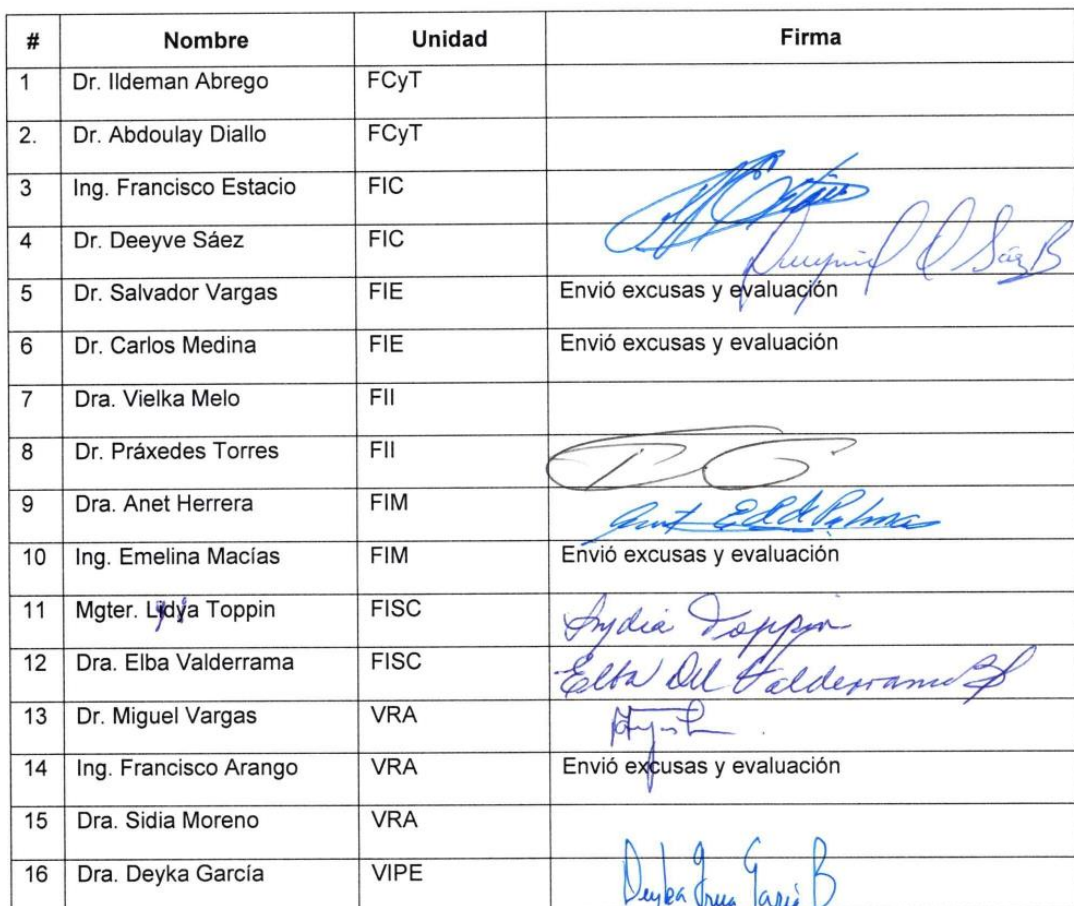 # Nombre Unidad Firma
1 Dr. Ildeman Abrego FCyT
2. Dr. Abdoulay Diallo FCyT
3 Ing. Francisco Estacio FIC
4 Dr. Deeyve Sáez FIC Sáez B
5 Dr. Salvador Vargas FIE Envió excusas y evaluación
6 Dr. Carlos Medina FIE Envió excusas y evaluación
7 Dra. Vielka Melo FII
8 Dr. Práxedes Torres FII
9 Dra. Anet Herrera FIM
10 Ing. Emelina Macías FIM Envió excusas y evaluación
11 Mgter. Lydia Toppin FISC Lydia Toppin
12 Dra. Elba Valderrama FISC Elba Del Valderrama
13 Dr. Miguel Vargas VRA
14 Ing. Francisco Arango VRA Envió excusas y evaluación
15 Dra. Sidia Moreno VRA
16 Dra. Deyka García VIPE Deyka García B